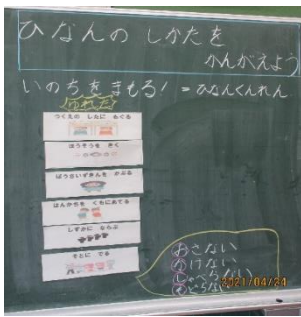 ひなんの しかたを
かんがえよう
いのちをまもる！ =ひなんくんれん
ゆれた
つくえの したに もぐる
ほうそうを きく
ぼうさいずきんを かぶる
はんかちを くちにあてる
しずかに ならぶ
そとに でる
おさない
かけない
しゃべらない
もどらない
2021/04/24